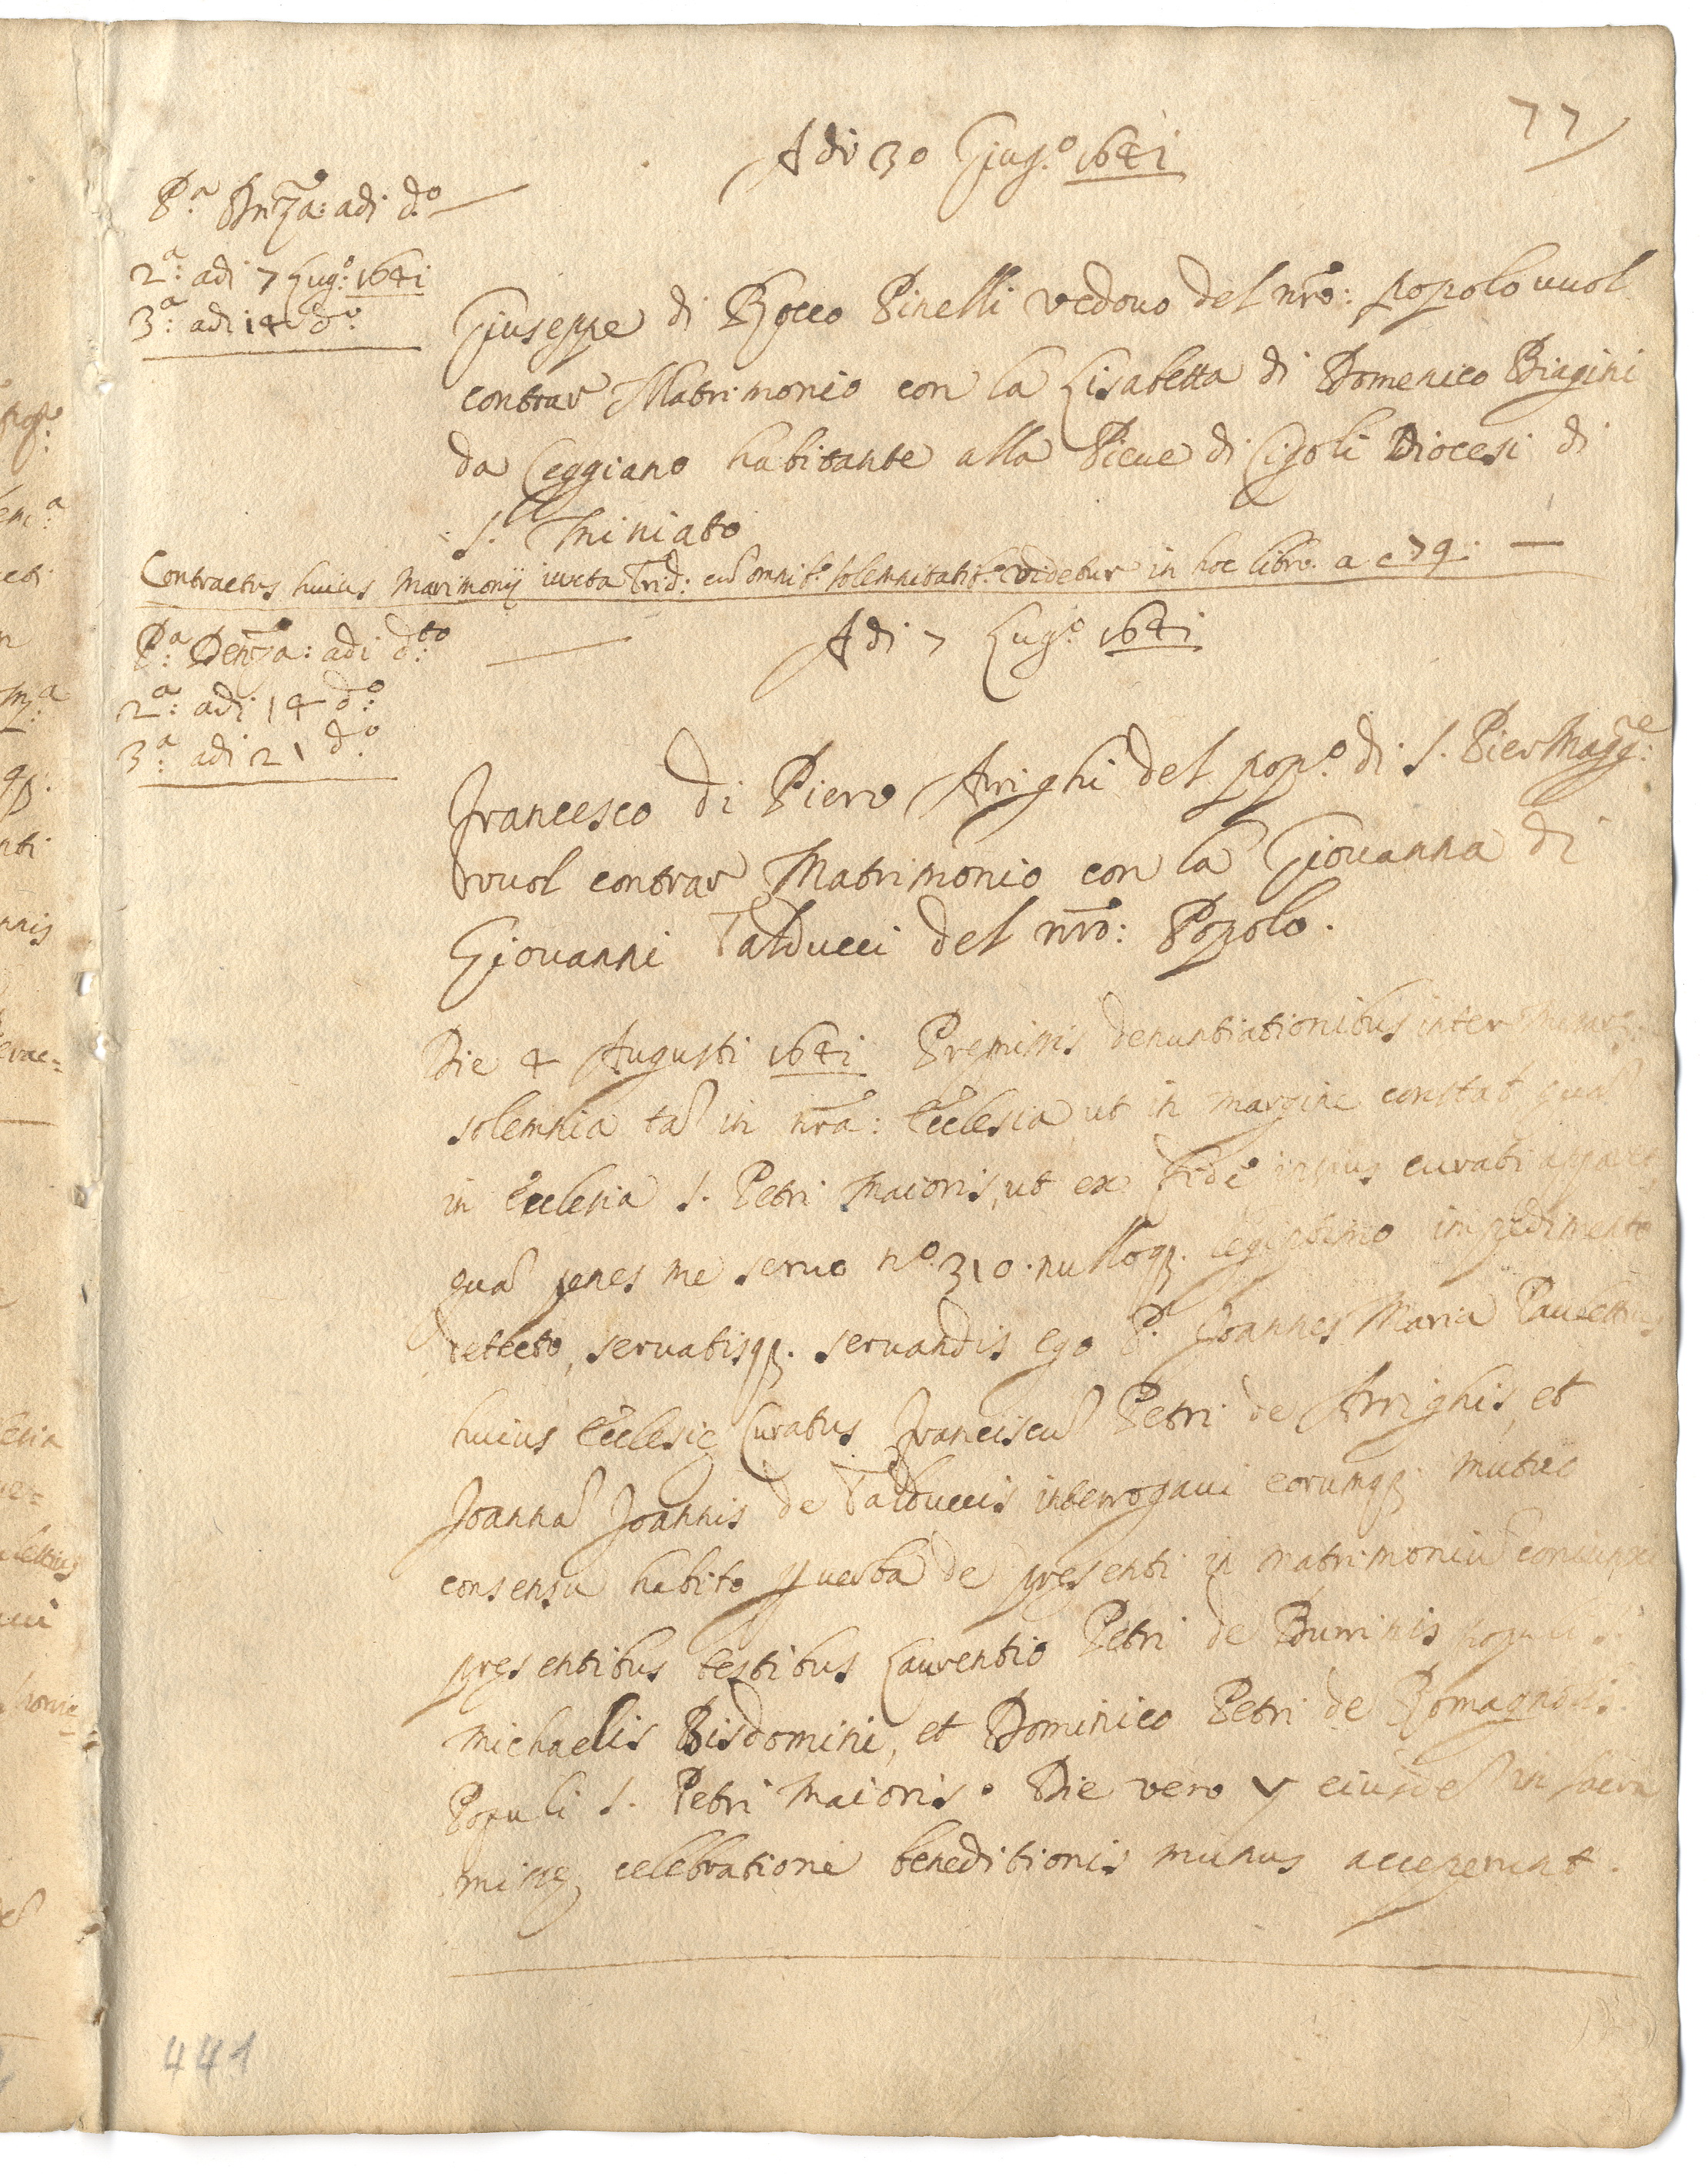 77
Adi 30 Giug.o 1641
P.a Dn̄za: adi d.o
2.a: adi 7 Lug.o: 1641
3.a: adi 14 d.o
Giuseppe di Rocco Pinelli vedovo del nr̄o: popolo vuol
contrar Matrimonio con la Lisabetta di Domenico Biagini
da Ceggiano habitante alla Pieve di Cigoli Diocesi di
S. Miniato
Contractus huius Marimonij iuxta Trid: cū omnib.s solemnitatib.s videtur in hoc libro a c 79.
Adi 7 Lug.o 1641
P.a Denza: adi d.to
2.a: adi 14 d.o:
3.a: adi 21 d.o
Francesco di Piero Arrighi del pop.o di S. Pier Magg.re:
vuol contrar Matrimonio con la Giovanna di
Giovanni Talducci del nr̄o: Popolo.
Die 4 Augusti 1641 Premissis denuntiationibus inter
solemnia tā in nr̄a: Ecclesia ut in margine constat quā
in Ecclesia S. Petri Maioris, ut ex fide ipsius curati apparet
quā penes me servo n.o 310. nulloq. legiptimo inpedimento
detecto, servatisq. servandis ego P. Joannes Maria Paulettius
huius Ecclesię Curatus Franciscū Petri de Arrighis, et
Joannā Joannis de Talduccis interrogavi eorumq. mutuo
consensu habito p verba de presenti in matrimoniū coniunxi
presentibus testibus Laurentio Petri de Burrinis populi S.
Michaelis Bisdomini, et Dominico Petri de Romagnolis
Populi S. Petri Maioris. Die vero 5 eiusdē in sacra
missę celebratione beneditionis munus acceperunt.
441